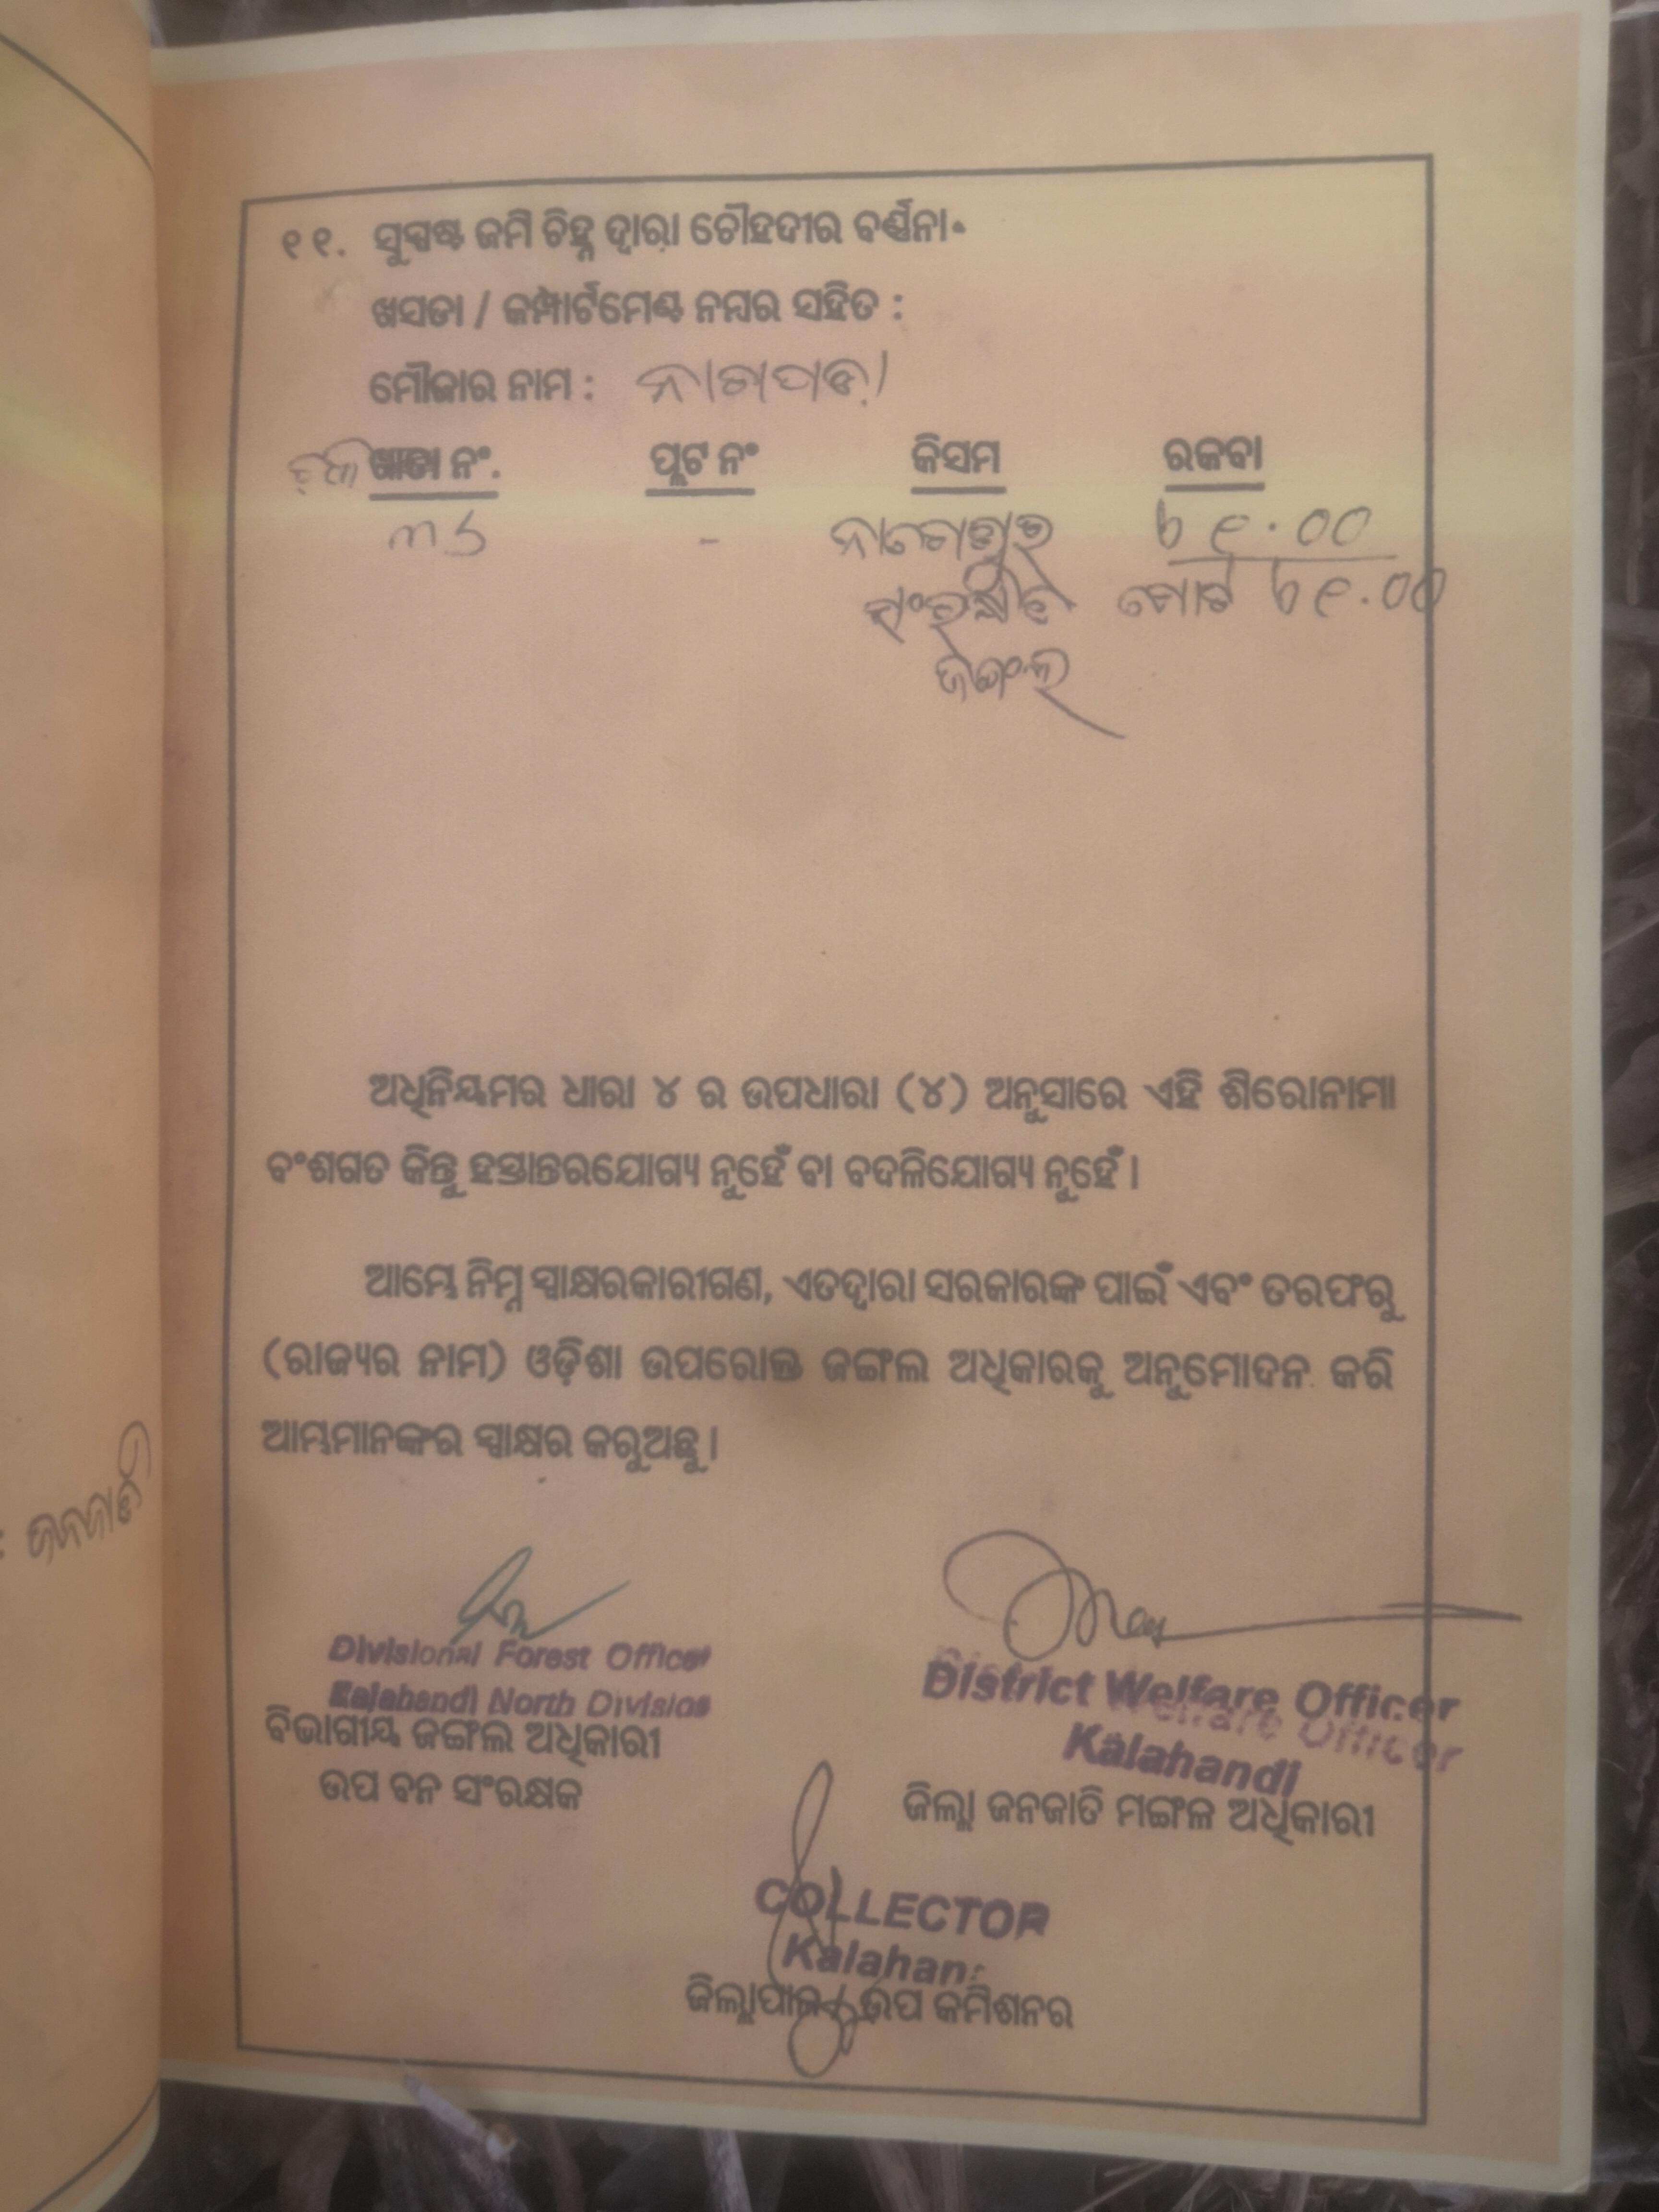 ୧୧. ସୁସ୍ପଷ୍ଟ ଜମି ଚିହ୍ନ ଦ୍ୱାରା ଚୌହଦୀର ବର୍ଣ୍ଣନା
ଖସଡା / କମ୍ପାର୍ଟମେଣ୍ଟ ନମ୍ବର ସହିତ :
ମୌଜାର ନାମ :
ନଂ. ପ୍ଲଟ ନଂ କିସମ ରକବା
୩୬ - ୪୧.୦୦
ସଂରକ୍ଷିତ ମୋଟ ୪୧.୦୦
ଜଙ୍ଗଲ
ଅଧିନିୟମର ଧାରା ୪ ର ଉପଧାରା (୪) ଅନୁସାରେ ଏହି ଶିରୋନାମା
ବଂଶଗତ କିନ୍ତୁ ହସ୍ତାନ୍ତରଯୋଗ୍ୟ ନୁହେଁ ବା ବଦଳିଯୋଗ୍ୟ ନୁହେଁ ।
ଆମ୍ଭେ ନିମ୍ନ ସ୍ୱାକ୍ଷରକାରୀଗଣ, ଏତଦ୍ଦ୍ୱାରା ସରକାରଙ୍କ ପାଇଁ ଏବଂ ତରଫରୁ
(ରାଜ୍ୟର ନାମ) ଓଡ଼ିଶା ଉପରୋକ୍ତ ଜଙ୍ଗଲ ଅଧିକାରକୁ ଅନୁମୋଦନ କରି
ଆମ୍ଭମାନଙ୍କର ସ୍ୱାକ୍ଷର କରୁଅଛୁ ।
: ଜନଜାତି
Divisional Forest Officer
Kalahandi North Division
ବିଭାଗୀୟ ଜଙ୍ଗଲ ଅଧିକାରୀ
ଉପ ବନ ସଂରକ୍ଷକ
District Welfare Officer
Kalahandi
ଜିଲ୍ଲା ଜନଜାତି ମଙ୍ଗଳ ଅଧିକାରୀ
COLLECTOR
Kalahan
ଜିଲ୍ଲାପାଳ / ଉପ କମିଶନର